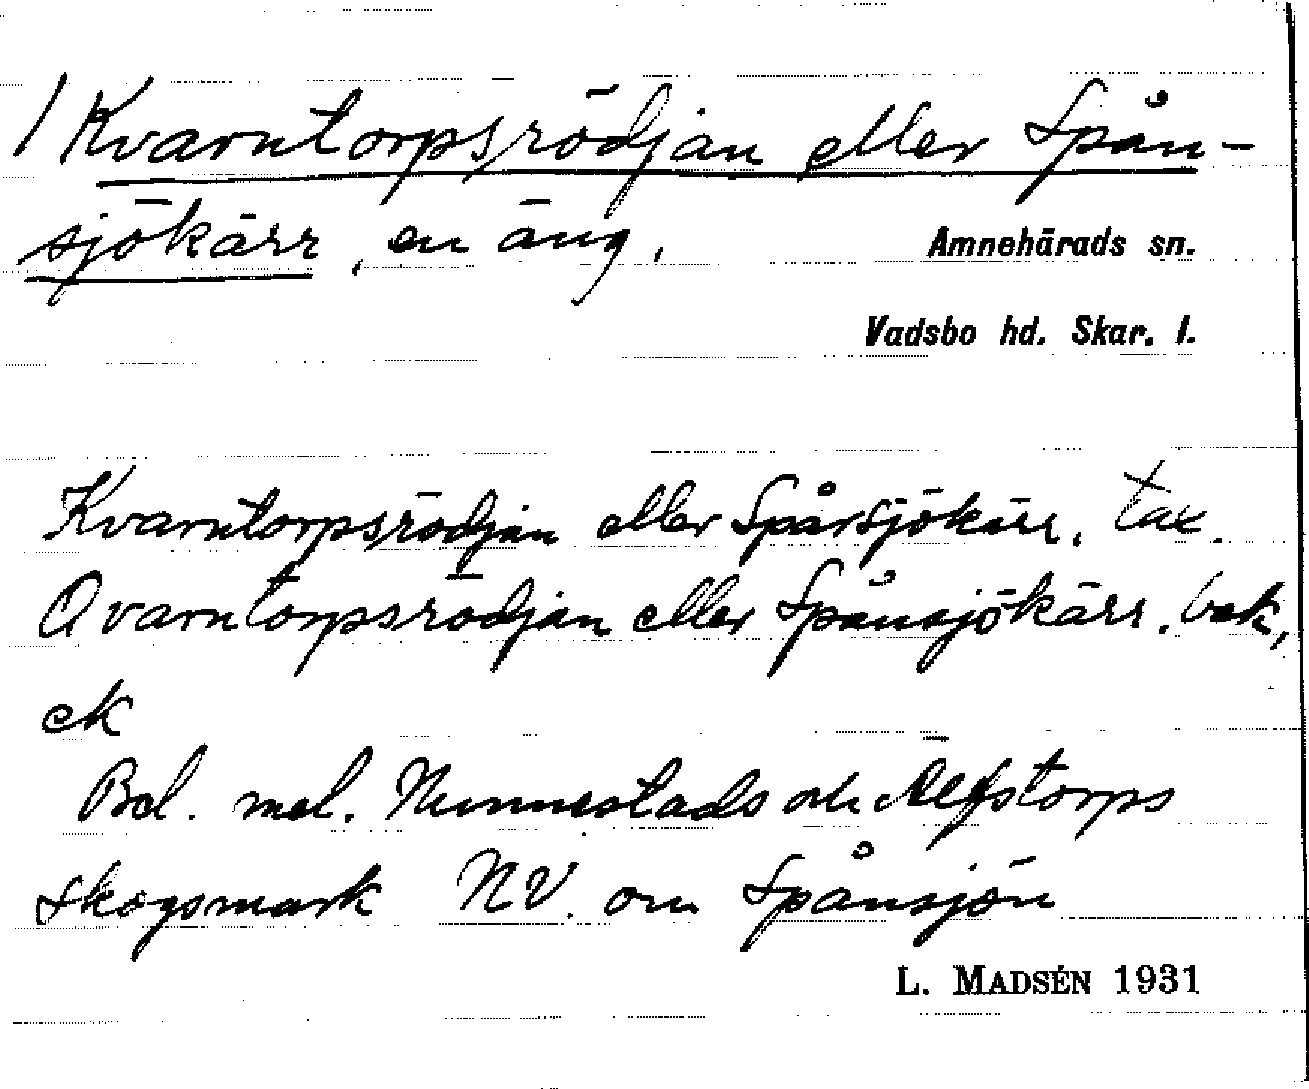 / Kvarntorpsrödjan eller Spån-
sjökärr, en äng.
Amnehärads sn.
Vadsbo hd. Skar. l.
Kvarntorpsrödjan eller Spånsjökärr. tax.
Qvarntorpsrödjan eller Spånsjökärr.
ek
Bel. mel. Nunnestads och Älfstorps
Skogsmark NV. om Spånsjön
L. MADSÉN 1931